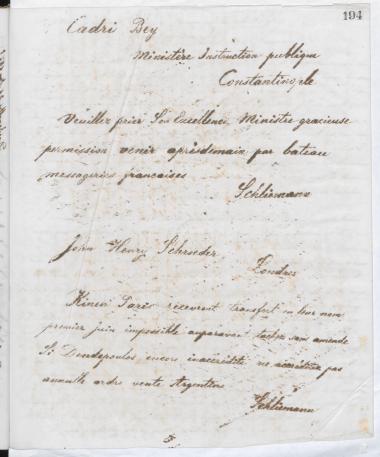 194
Cadri Bey
Ministère Instruction publique
Constantinople
Veuillez prier Son Excellence Ministre gracieuse
permission venir aprèsdemain par bateau
messageries francaises
Schliemann
John Henry Schroeder
Londres
Paris recevront transfert en leur nom
premier juin impossible auparavant sans amende
Si encore pas
annulle ordre vente Argentine
Schliemann